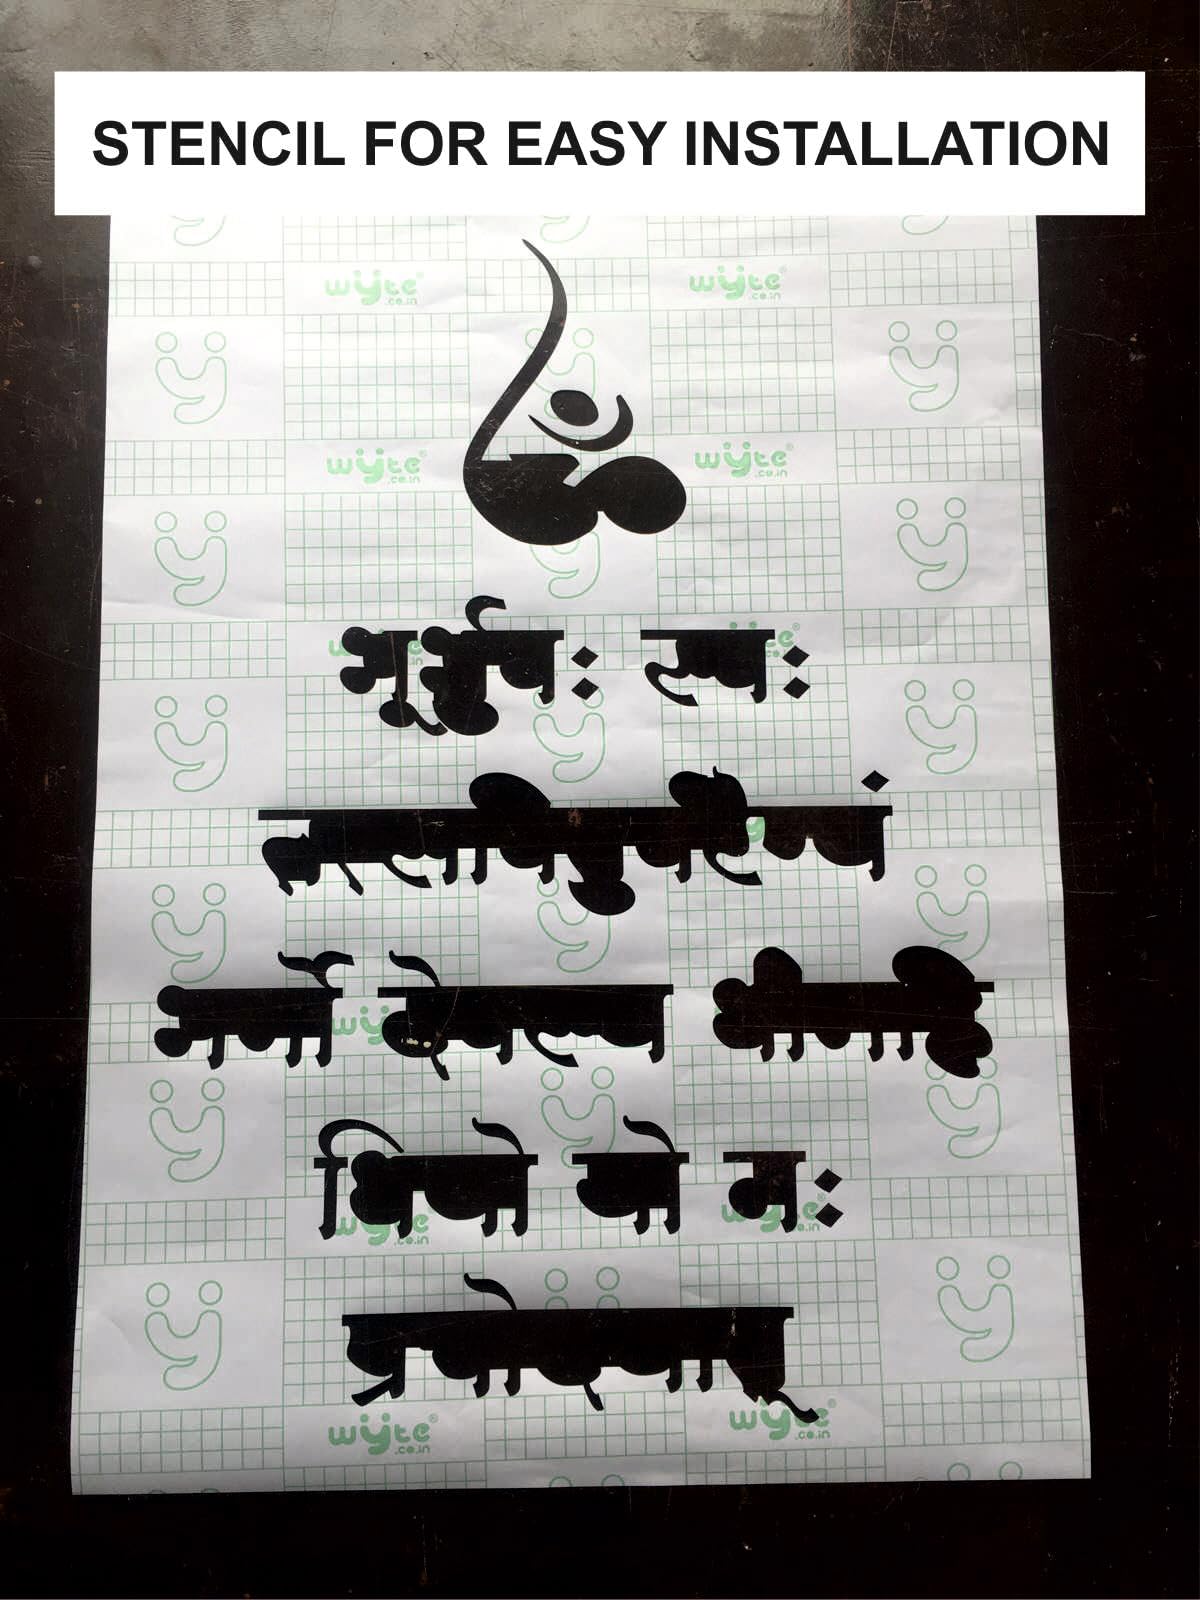 STENCIL FOR EASY INSTALLATION
wyte® .co.in wyte® .co.in
wyte® .co.in wyte® .co.in
ॐ
भूर्भुवः स्वः
तत्सवितुर्वरेण्यं
भर्गो देवस्य धीमहि
धियो यो नः
प्रचोदयात्
wyte® .co.in wyte® .co.in